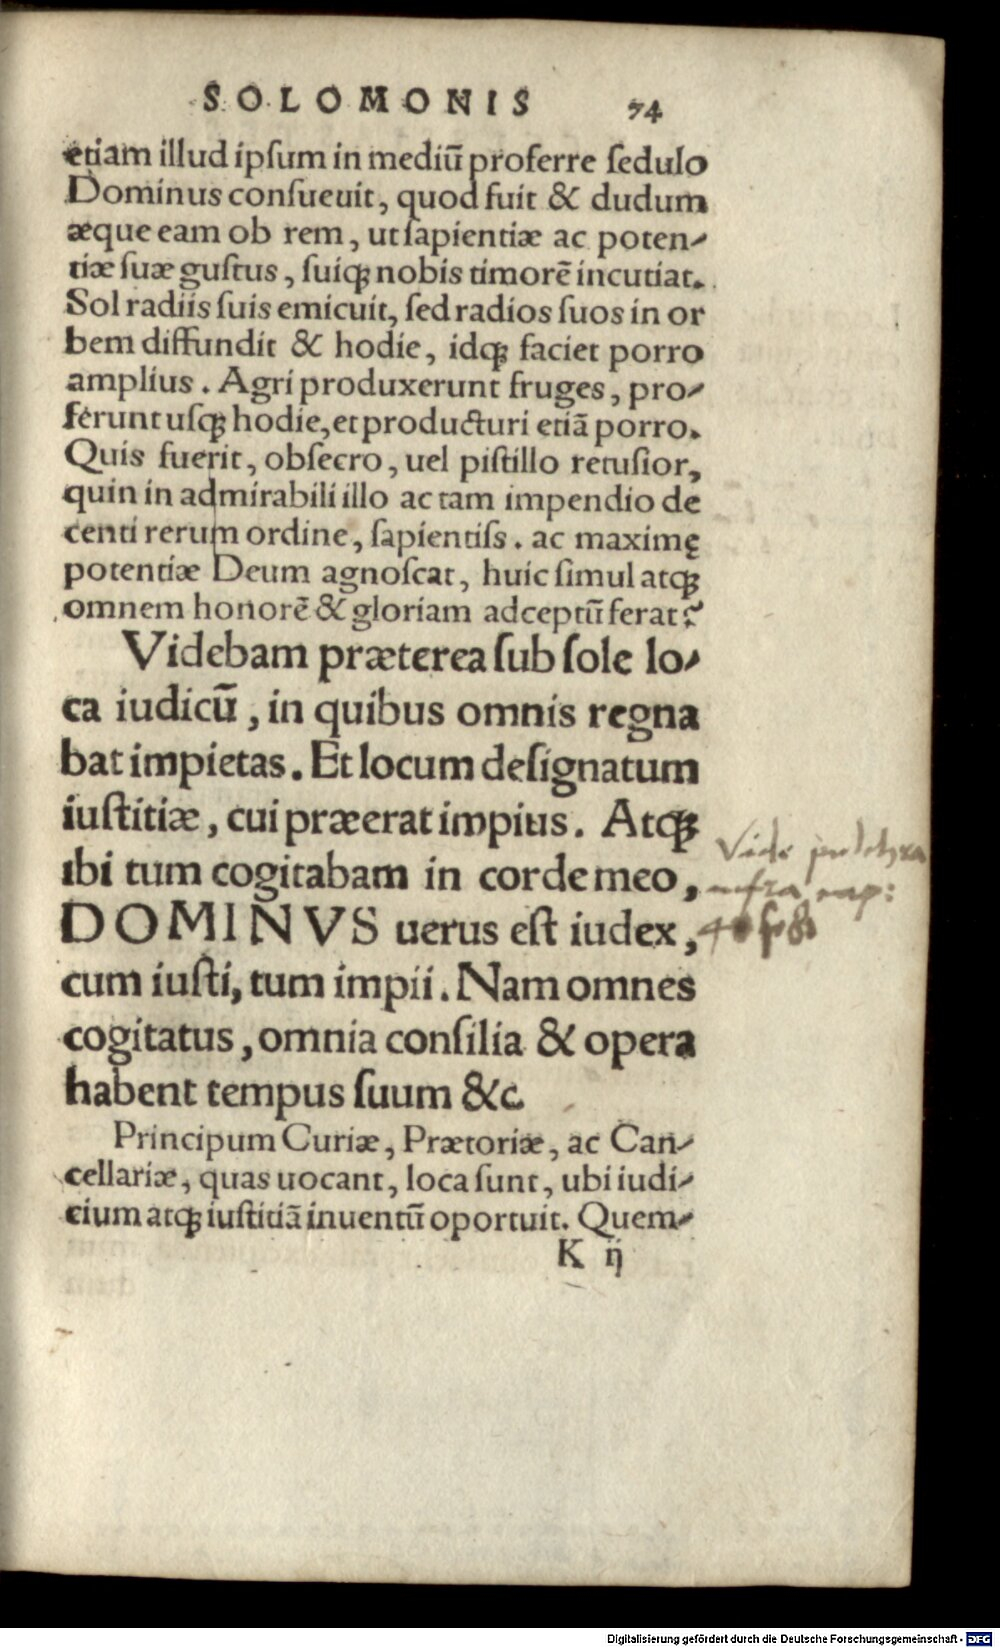 SOLOMONIS 74
etiam illud ipſum in mediū proferre ſedulo
Dominus conſueuit, quod fuit & dudum
æque eam ob rem, ut ſapientiæ ac poten-
tiæ ſuæ guſtus, ſuiqꝫ nobis timorē incutiat.
Sol radiis ſuis emicuit, ſed radios ſuos in or
bem diffundit & hodie, idqꝫ faciet porro
amplius. Agri produxerunt fruges, pro-
ferunt uſqꝫ hodie, et producturi etiā porro.
Quis fuerit, obſecro, uel piſtillo retuſior,
quin in admirabili illo ac tam impendio de
centi rerum ordine, ſapientiſs. ac maximę
potentiæ Deum agnoſcat, huic ſimul atqꝫ
omnem honorē & gloriam adceptū ferat?
Videbam præterea ſub ſole lo-
ca iudicū, in quibus omnis regna
bat impietas. Et locum deſignatum
iuſtitiæ, cui præerat impius. Atqꝫ
ibi tum cogitabam in corde meo,
DOMINVS uerus eſt iudex,
cum iuſti, tum impii. Nam omnes
cogitatus, omnia conſilia & opera
habent tempus ſuum &c.
Principum Curiæ, Prætoriæ, ac Can-
cellariæ, quas uocant, loca ſunt, ubi iudi-
cium atqꝫ iuſtitiā inuentū oportuit. Quem-
K ij
Vide pulchra
infra cap:
Digitalisierung gefördert durch die Deutsche Forschungsgemeinschaft - DFG